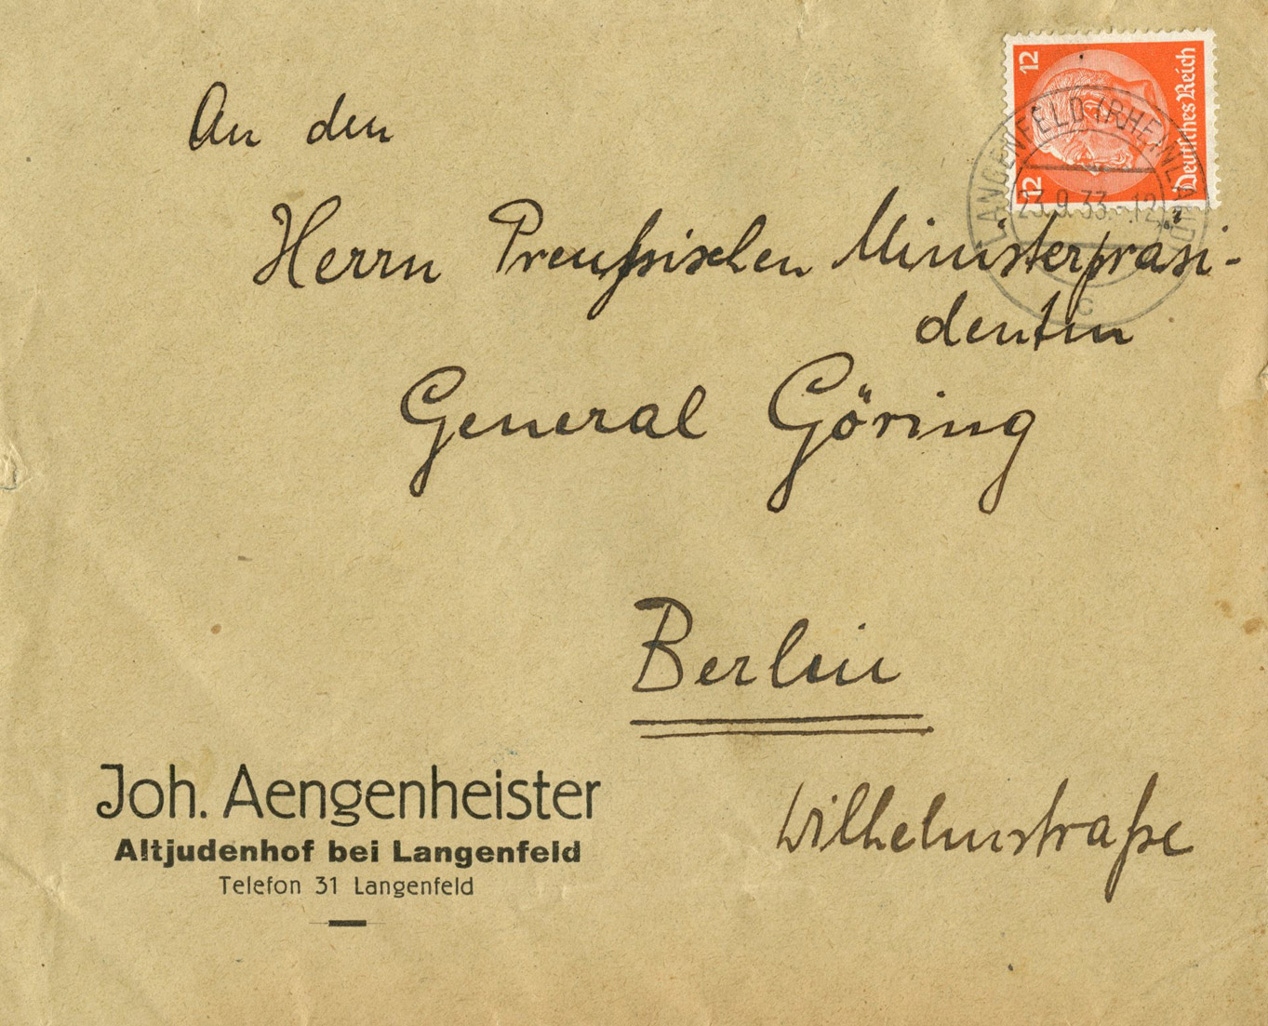 12
12
Deutsches Reich
LANGENFELD (RHEINLAND)
23.9.33.-12
c
An den
Herrn Preußischen Ministerpräsi-
denten
General Göring
Berlin
Wilhelmstraße
Joh. Aengenheister
Altjudenhof bei Langenfeld
Telefon 31 Langenfeld